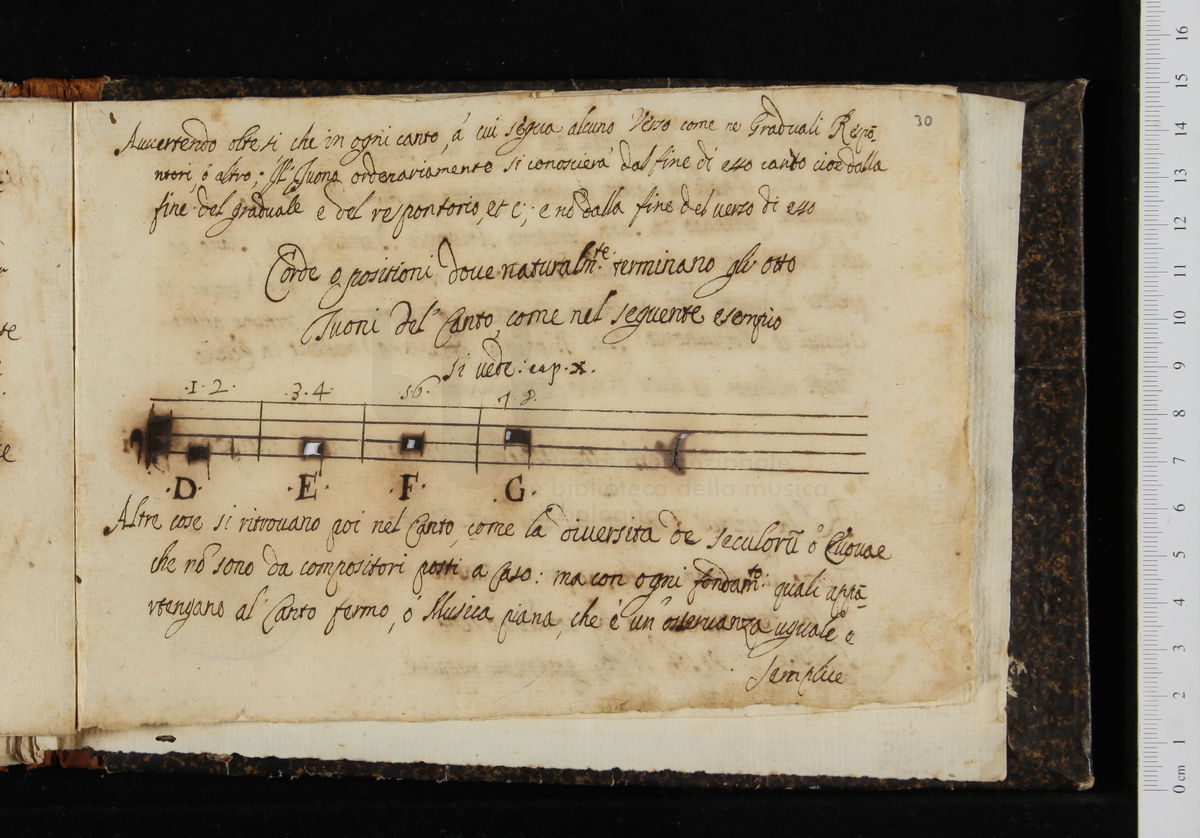 30
Avvertendo oltre ti che in ogni canto, à cui segua alcuno Verso come ne Graduali Respō
ntori, ó altro; Il Tuono ordenariamento si conoscierà dal fine di esso canto cioè dalla
fine del graduale e del respontorio, et c; e nō dalla fine del verso di esso
Corde o positioni dove naturalm.te terminano gli otto
Tuoni del Canto, come nel seguente esempio
si vede: cap. X.
·1· 2· 3· 4· 56· 7· 8·
·D· ·E· ·F· ·G·
Altre cose si ritrovano poi nel Canto, come la diversità de seculorū ó Evovae
che nō sono da compositori posti a caso: ma con ogni fondam.to: quali appā
rtengano al Canto fermo, ó Musica piana, che è un'osservanza uguale e
semplice
biblioteca della musica
16
15
14
13
12
11
10
9
8
7
6
5
4
3
2
1
0 cm